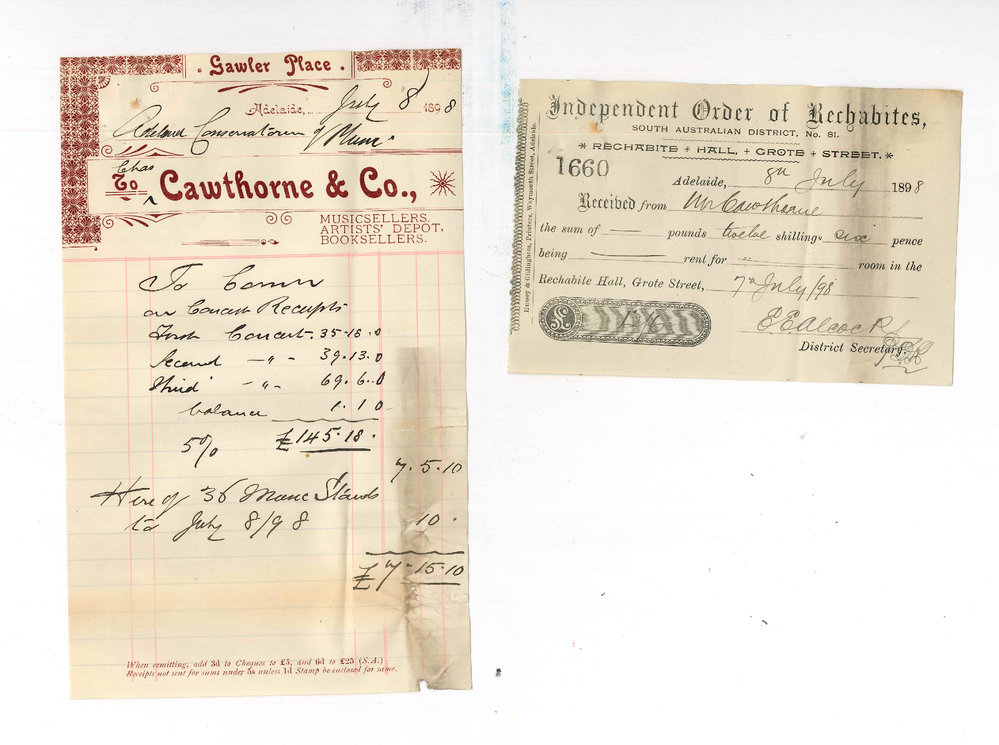 · Gawler Place ·
Adelaide, July 8 1898
Adelaid Conservatorium of Music
Chas
To Cawthorne & Co.,
MUSICSELLERS,
ARTISTS' DEPOT,
BOOKSELLERS.
To Comm
on Concert Receipts
First Concert 35-18.0
Second -"- 39.13.0
Third -"- 69.6.0
balance 1.1.0
5% £145.18.
7.5.10
Hire of 36 Music Stands
to July 8/98 10.
£7-15.10
When remitting, add 3d to Cheques to £5, and 6d to £25 (S.A.)
Receipts not sent for sums under 5s unless 1d Stamp be enclosed for same.
Independent Order of Rechabites,
SOUTH AUSTRALIAN DISTRICT, No. 81.
* RECHABITE + HALL, + GROTE + STREET. *
1660
Adelaide, 8th July 1898
Received from Mr Cawthorne
the sum of — pounds twelve shillings six pence
being — rent for — room in the
Rechabite Hall, Grote Street, 7th July/98
£ 12/6
E. E. Alcock
District Secretary.
Hussey & Gillingham, Printers, Waymouth Street, Adelaide.